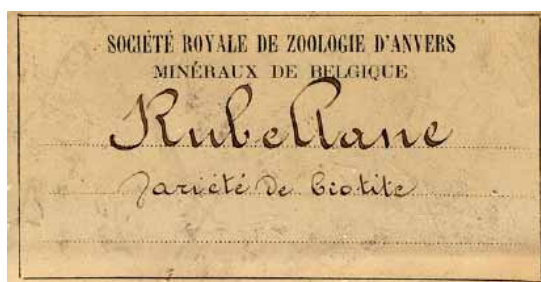 SOCIÉTÉ ROYALE DE ZOOLOGIE D'ANVERS
MINÉRAUX DE BELGIQUE
Rubellane
Variété de biotite